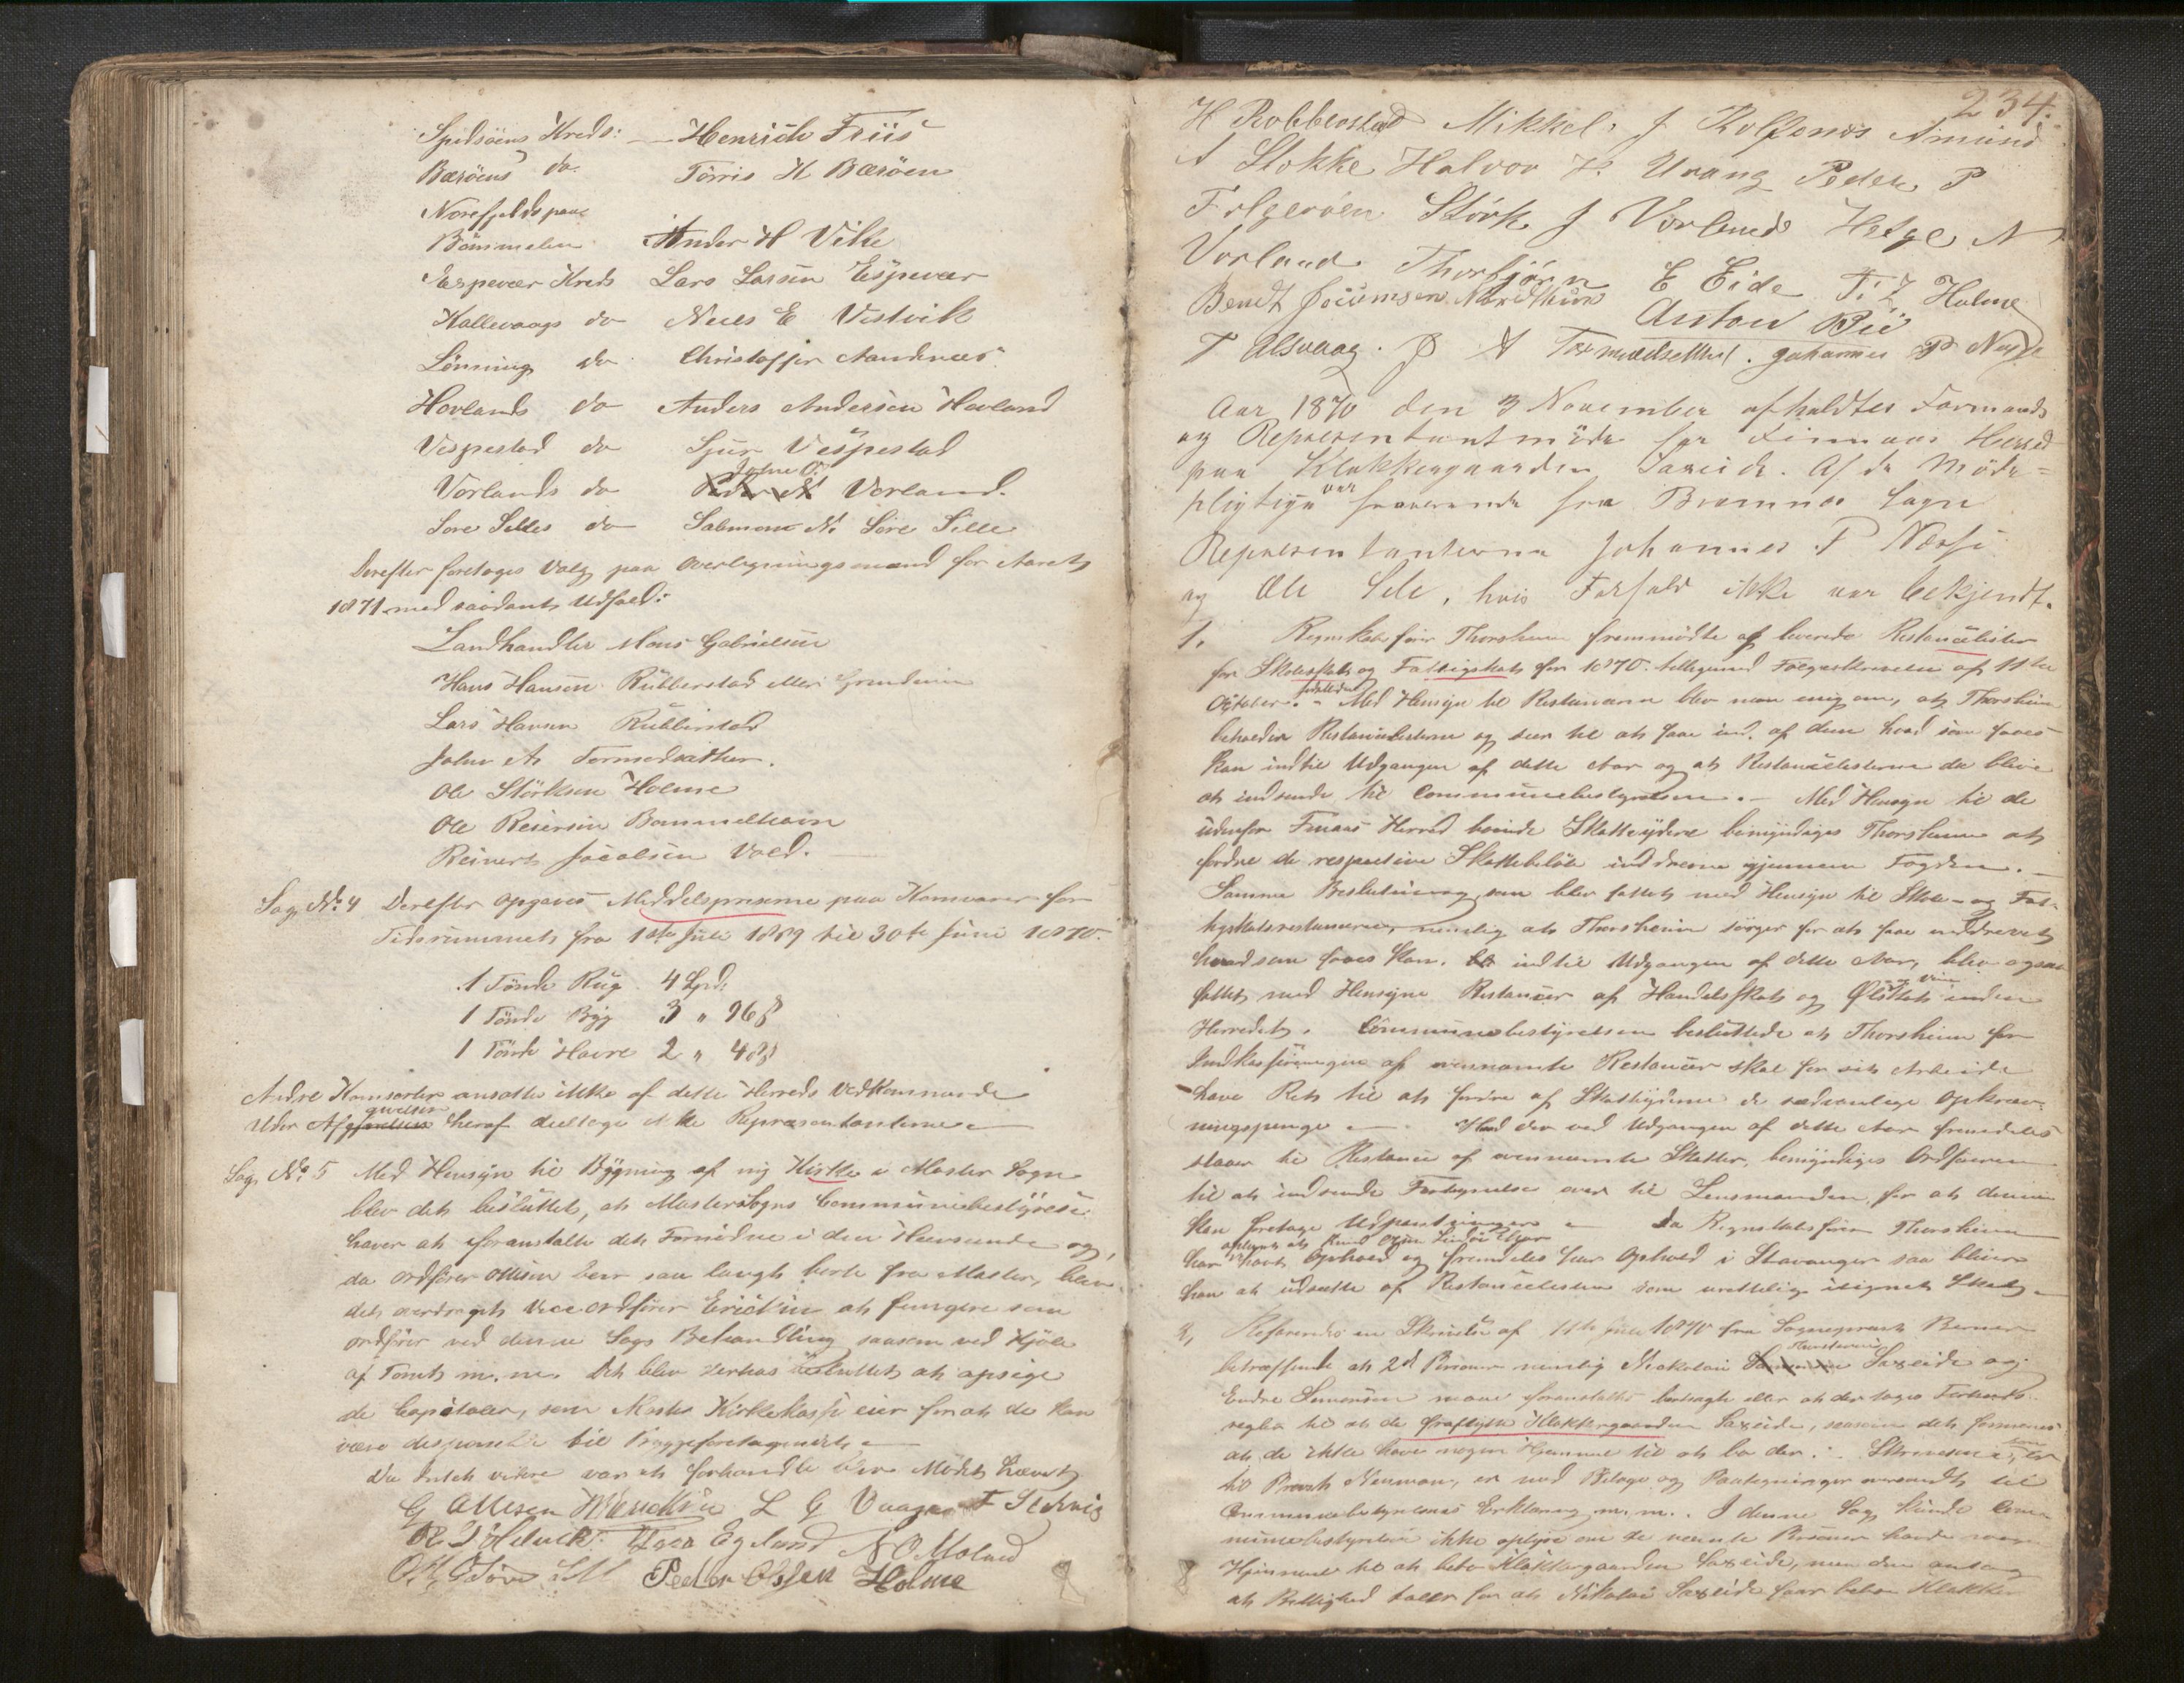 Spidsöens Kreds: — Henrich Friis
Bærøens do Törris H Bærøen
Norefjelds paa
Bömmelen Anders H Vike
Espevær Kreds Lars Larsen Espevær
Kallevaags do Neels E Vestvik
Lönning do Christoffer Aandnæs
Hovlands do Anders Andersen Hovland
Vespestad do Sjur Vespestad
Vorlands do Vorland.
Søre Selles do Salmon N. Søre Selle
Derefter foretoges Valg paa Overligningsmænd for Aaret
1871 med saadant Udfald:
Landhandler Mons Gabrielsen
Hans Hansen Rubberstad
Lars Hansen Rubberstad
John A Tormodsæther.
Ole Störksen Holme
Ole Reiersen Bømmelhavn
Reinert Jacobsen Vold.
Sag No 4 Derefter opgaves Middelpriserne paa Kornvarer for
Tidsrummet fra 1ste Juli 1869 til 30te Juni 1870.
1 Tønde Rug 4 Spd.
1 Tönde Byg 3 " 96 ß
1 Tönde Havre 2 " 48 ß
Andre Kornsorter ansattes ikke af dette Herreds Vedkommende
Under Afgivelsen heraf deeltoge ikke Repræsentanterne —
Sag No 5 Med Hensyn til Bygning af ny Kirke i Moster Sogn
blev det besluttet, at Moster Sogns Communebestyrelse
haver at foranstalte det Fornødne i den Henseende og,
da Ordfører Ollesen boer saa langt borte fra Moster, blev
det overdraget Viceordfører Ericksen at fungere som
Ordfører ved denne Sags Behandling saasom ved Kjöb
af Tomt m.m. Det blev derhos besluttet at opsige
de Capitaler, som Moster Kirkekasse eier for at de kan
være disponible til Byggeforetagendet —
Da Intet videre var at forhandle blev Mödet hævet
G Ollesen W Ericksen L G Vaage F Stokvig
Egeland N O Moland
Peder Olssen Holme
234.
H Robberstad Mikkel J Rolfsnes Amund
A Stokke Halvor H. Urang Peder P
Folgerøen Störk J Vorland Helge N
Vorland Thorbjörn E Eide T. Z Holme
Bendt Joc##umsen Nordhuus Anton Bie
T Alsvaag. Ø A Tormodsæther. Johannes P Næsse
Aar 1870 den 3 November afholdtes Formands
og Repræsentantmöde for Finnaas Herred
paa Klokkergaarden Saxeide. Af de Möde=
pligtige var fraværende fra Bremnes Sogn
Repræsentanterne Johannes P Næsse
og Ole Sele, hvis Forfald ikke var bekjendt.
1. Regnskabsfører Thorsheim fremmödte og leverede Restancelister
for Skoleskat og Fattigskat for 1870 tilligemed Følgeskrivelse af 11te
October. Med Hensyn til Restancerne blev man enig om, at Thorsheim
beholder Restancelisterne og seer til at faae ind af dem hvad som faaes
kan indtil Udgangen af dette Aar og at Restancelisterne da blive
at indsende til Communebestyrelsen. — Med Hensyn til de
udenfor Finnaas Herred boende Skatteydere bemyndiges Thorsheim at
fordre de respective Skattebeløb inddrevne gjennem Fogden. —
Samme Beslutning, som blev fattet med Hensyn til Skole- og Fat-
tigskatsrestancerne, nemlig at Thorsheim sörger for at faae inddrevet
hvad som faaes kan indtil Udgangen af dette Aar, blev ogsaa
fattet med Hensyn Restancer af Handelsskat og Ølskat inden
Herredet. Communebestyrelsen besluttede at Thorsheim for
Indkasseringen af ovennævnte Restancer skal for sit Arbeide
have Ret til at fordre af Skatteyderne de sædvanlige Opkræv-
ningspenge —. Hvad der ved Udgangen af dette Aar fremdeles
staaer til Restance af ovennævnte Skatter, bemyndiges Ordføreren
til at indsende Fortegnelse over til Lensmanden, for at denne
kan foretage Udpantninger — Da Regnskabsfører Thorsheim
har oplyst at
havt Ophold og fremdeles har Ophold i Stavanger saa bliver
han at udsætte af Restancelisten som urettelig ilignet Skat —
2, Refereredes en Skrivelse af 11te Juli 1870 fra Sogneprest Berner
betræffende at 2de Personer nemlig Nicolai Saxeide og
Endre Simonsen maae foranstaltes bortsagt eller at der tages Forholds-
regler til at de fraflytte Klokkergaarden Saxeide, saasom det formenes
at de ikke have nogen Hjemmel til at bo der. Skrivelsen, som er
til Provst Neuman, er med Bilage og Paategninger oversendt til
Communebestyrelsens Erklæring m.m. I denne Sag kunde Com-
munebestyrelsen ikke oplyse om de nævnte Personer havde nogen
Hjemmel til at beboe Klokkergaarden Saxeide, men den antog
at Billighed taler for at Nikolai Saxeide faar beboe Klokker